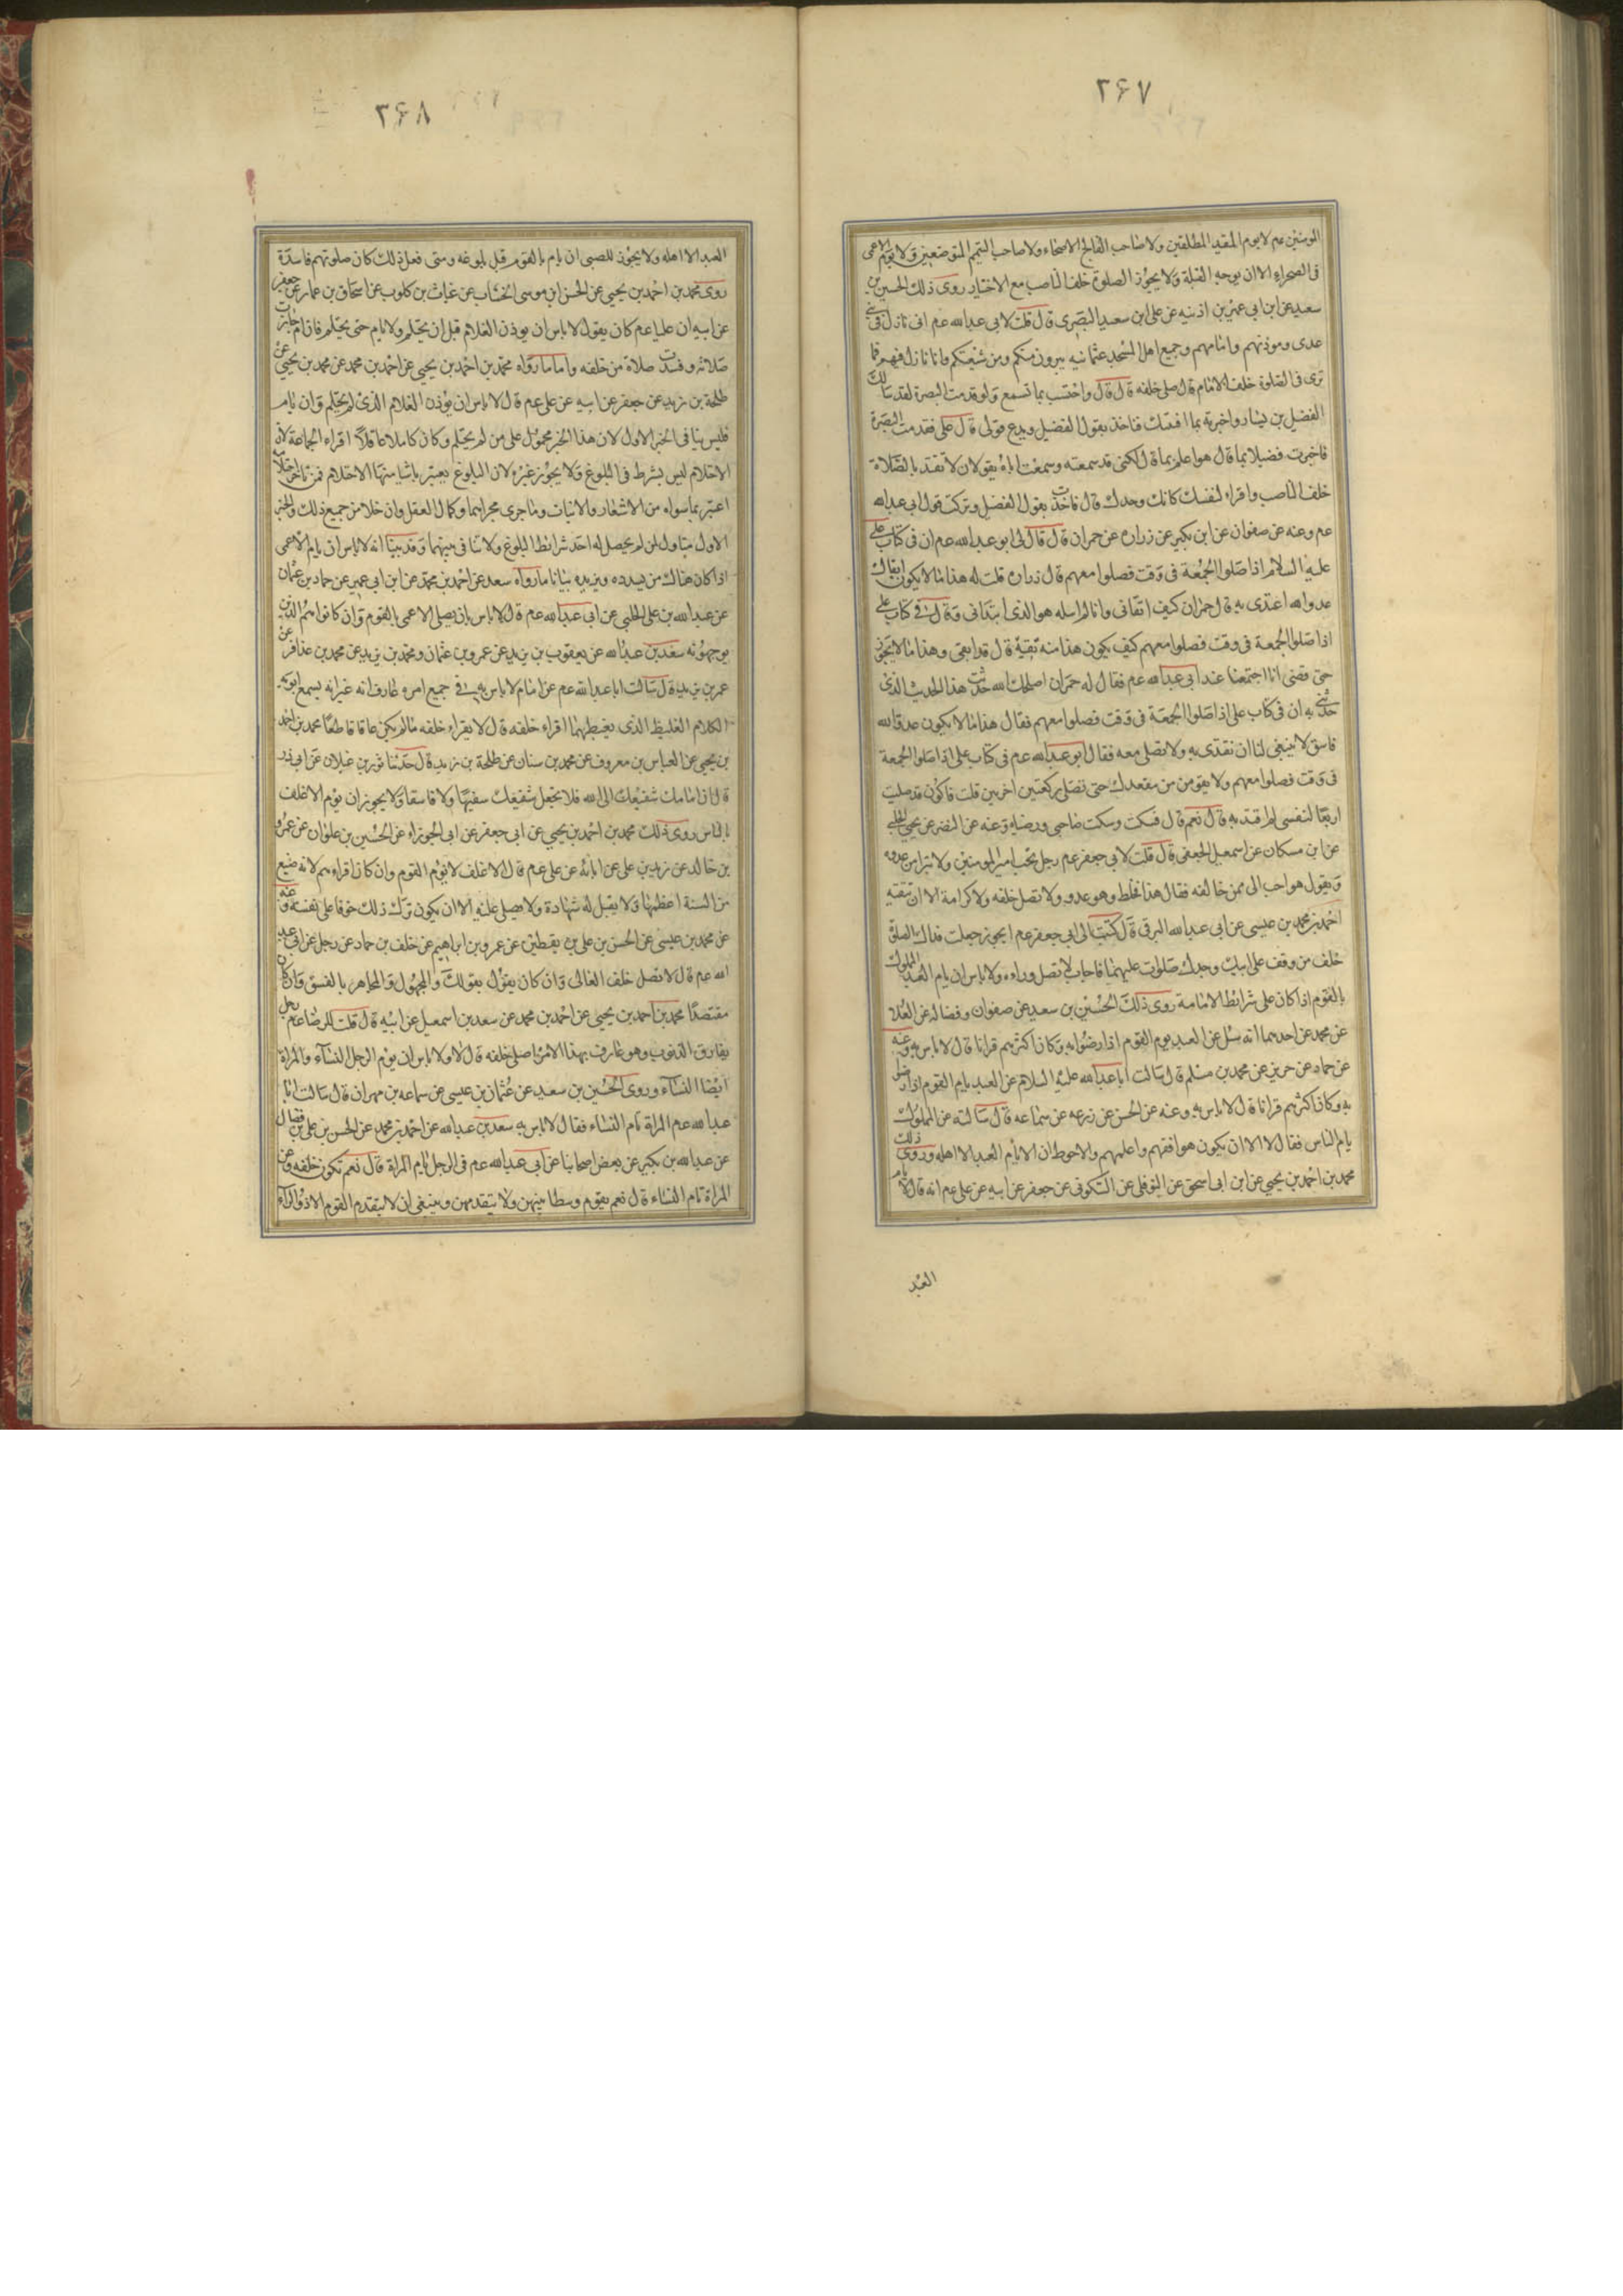 ۲۶۷
المومنين عم لا يوم المقيد المطلقين ولا صاحب الفالج الاصحاء ولا صاحب التيمم المتوضعين ولا يوم الاعمى
فى الصحراء الا ان يوجه القبلة ولا يجوز الصلوة خلف الناصب مع الاختيار روى ذلك الحسين بن
سعيد عن ابن ابى عمير بن اذنيه عن على ابن سعيد البصرى قال قلت لابى عبد الله عم انى نازل فى بنى
عدى وموذنهم وامامهم وجميع اهل المسجد عثمانيه يبرون منكم ومن شيعتكم وانا نازل فيهم فما
ترى فى الصلوة خلف الامام قال صل خلفه قال قال واحتسب بما تسمع ولو قدمت البصرة لقد سالك
الفضيل بن يسار واخبرته بما افتيتك فتاخذ بقول الفضيل ويدع قولى قال على فقدمت البصرة
فاخبرت فضيلا بما قال هو اعلم بما قال لكنى قد سمعته وسمعت اباه يقولان لا تعتد بالصلاة
خلف الناصب واقراء لنفسك كانك وحدك قال فاخذت بقول الفضيل وتركت قول ابى عبد الله
عم وعنه عن صفوان عن ابن بكير عن زراره عن حمران قال قال لى ابو عبد الله عم ان فى كتاب على
عليه السلام اذا صلوا الجمعة فى وقت فصلوا معهم قال زراره قلت له هذا ما لا يكون اتقاك
عدو الله اقتدى به قال حمران كيف اتقانى وانا لم اسله هو الذى ابتدانى وقال فى كتاب على
اذا صلوا الجمعة فى وقت فصلوا معهم كيف يكون هذا منه تقيه قال قد اتقى وهذا ما لا يجوز
حتى قضى انا اجتمعنا عند ابى عبد الله عم فقال له حمران اصلحك الله حدثت هذا الحديث الذى
حدثنى به ان فى كتاب على اذا صلوا الجمعة فى وقت فصلوا معهم فقال هذا ما لا يكون عدو الله
فاسق لا ينبغى لنا ان نقتدى به ولا نصلى معه فقال ابو عبد الله عم فى كتاب على اذا صلوا الجمعة
فى وقت فصلوا معهم ولا يقومن من مقعدك حتى تصلى ركعتين اخريين قلت فاكون قد صليت
اربعا لنفسى لم اقتد به قال نعم قال فسكت وسكت صاحبى ورضاه وعنه عن النضر عن يحيى الحلبى
عن ابن مسكان عن اسمعيل الجعفى قال قلت لابى جعفر عم رجل يحب امير المومنين ولا يتبرا من عدوه
ويقول هو احب الى ممن خالفه فقال هذا مخلط وهو عدو ولا تصل خلفه ولا كرامة الا ان تتقيه
احمد بن محمد بن عيسى عن ابى عبد الله البرقى قال كتبت الى ابى جعفر عم ايجوز جعلت فداك الصلوة
خلف من وقف على ابيك وجدك صلوات عليهما فاجاب لا تصل وراءه ولا باس ان يام العبد المملوك
بالقوم اذا كان على شرائط الامامة روى ذلك الحسين بن سعيد عن صفوان وفضاله عن العلا
عن محمد عن احدهما انه سئل عن العبد يوم القوم اذا رضوا به وكان اكثرهم قرانا قال لا باس به وعنه
عن حماد عن حريز عن محمد بن مسلم قال سالت ابا عبد الله عليه السلام عن العبد يام القوم اذا رضوا
به وكان اكثرهم قرانا قال لا باس به وعنه عن الحسن عن زرعه عن سماعه قال سالته عن المملوك
يام الناس فقال لا الا ان يكون هو افقههم واعلمهم والاحوط ان لا يام العبد الا اهله وروى ذلك
محمد بن احمد بن يحيى عن ابن ابى اسحق عن النوفلى عن السكونى عن جعفر عن ابيه عن على عم انه قال لا يام
العبد
۲۶۸
العبد الا اهله ولا يجوز للصبى ان يام بالقوم قبل بلوغه ومتى فعل ذلك كان صلوتهم فاسدة
روى محمد بن احمد بن يحيى عن الحسن ابن موسى الخشاب عن غياث بن كلوب عن اسحاق بن عمار عن جعفر
عن ابيه ان عليا عم كان يقول لا باس ان يوذن الغلام قبل ان يحتلم ولا يام حتى يحتلم فان ام جازت
صلاته وفسدت صلاة من خلفه واما ما رواه محمد بن احمد بن يحيى عن احمد بن محمد عن محمد بن يحيى عن
طلحة بن زيد عن جعفر عن ابيه عن على عم قال لا باس ان يوذن الغلام الذى لم يحتلم وان يام
فليس ينافى الخبر الاول لان هذا الخبر محمول على من لم يحتلم وكان كاملا عاقلا اقراء الجماعة لان
الاحتلام ليس بشرط فى البلوغ ولا يجوز غيره لان البلوغ يعتبر باشيا منها الاحتلام فمن تاخر احتلامه
اعتبر بما سواه من الاشعار والانبات وما جرى مجراهما وكمال العقل وان خلا من جميع ذلك والخبر
الاول متناول لمن لم يحصل له احد شرائط البلوغ ولا تنافى بينهما وقد بينا انه لا باس ان يام الاعمى
اذا كان هناك من يسدده ويزيده بيانا ما رواه سعد عن احمد بن محمد عن ابن ابى عمير عن حماد بن عثمان
عن عبيد الله بن على الحلبى عن ابى عبد الله عم قال لا باس بان يصلى الاعمى بالقوم وان كانوا هم الذين
يوجهونه سعد بن عبد الله عن يعقوب بن يزيد عن عمرو بن عثمان ومحمد بن يزيد عن محمد بن عذافر عن
عمر بن يزيد قال سالت ابا عبد الله عم عن امام لا باس به فى جميع امره عارف انه غير انه يسمع ابويه
الكلام الغليظ الذى يغيظهما اقراء خلفه قال لا يقراء خلفه ما لم يكن عاقا قاطعا محمد بن احمد
بن يحيى عن العباس بن معروف عن محمد بن سنان عن طلحة بن زيد قال حدثنا ثور بن غيلان عن ابى ذر
قال ان امامك شفيعك الى الله فلا تجعل شفيعك سفيها ولا فاسقا ولا يجوز ان يوم الاغلف
بالناس روى ذلك محمد بن احمد بن يحيى عن ابى جعفر عن ابى الجوزاء عن الحسين بن علوان عن عمرو
بن خالد عن زيد بن على عن ابائه عن على عم قال الاغلف لا يوم القوم وان كان اقراءهم لانه ضيع
من السنة اعظمها ولا يقبل له شهادة ولا يصلى عليه الا ان يكون ترك ذلك خوفا على نفسه وعنه
عن محمد بن عيسى عن الحسن بن على بن يقطين عن عمرو بن ابراهيم عن خلف بن حماد عن رجل عن ابى عبد
الله عم قال لا تصل خلف الغالى وان كان يقول بقولك والمجهول والمجاهر بالفسق وان كان
مقتصدا محمد بن احمد بن يحيى عن احمد بن محمد عن سعد بن اسمعيل عن ابيه قال قلت للرضا عم رجل
يقارف الذنوب وهو عارف بهذا الامر اصلى خلفه قال لا ولا باس ان يوم الرجل النساء والمراة
ايضا النساء وروى الحسين بن سعيد عن عثمان بن عيسى عن سماعه بن مهران قال سالت ابا
عبد الله عم المراة تام النساء فقال لا باس به سعد بن عبد الله عن احمد بن محمد عن الحسن بن على بن فضال
عن عبد الله بن بكير عن بعض اصحابنا عن ابى عبد الله عم فى الرجل يام المراة قال نعم تكون خلفه وعن
المراة تام النساء قال نعم يقوم وسطا بينهن ولا يتقدمهن وينبغى ان لا يتقدم القوم الا ذو الراى